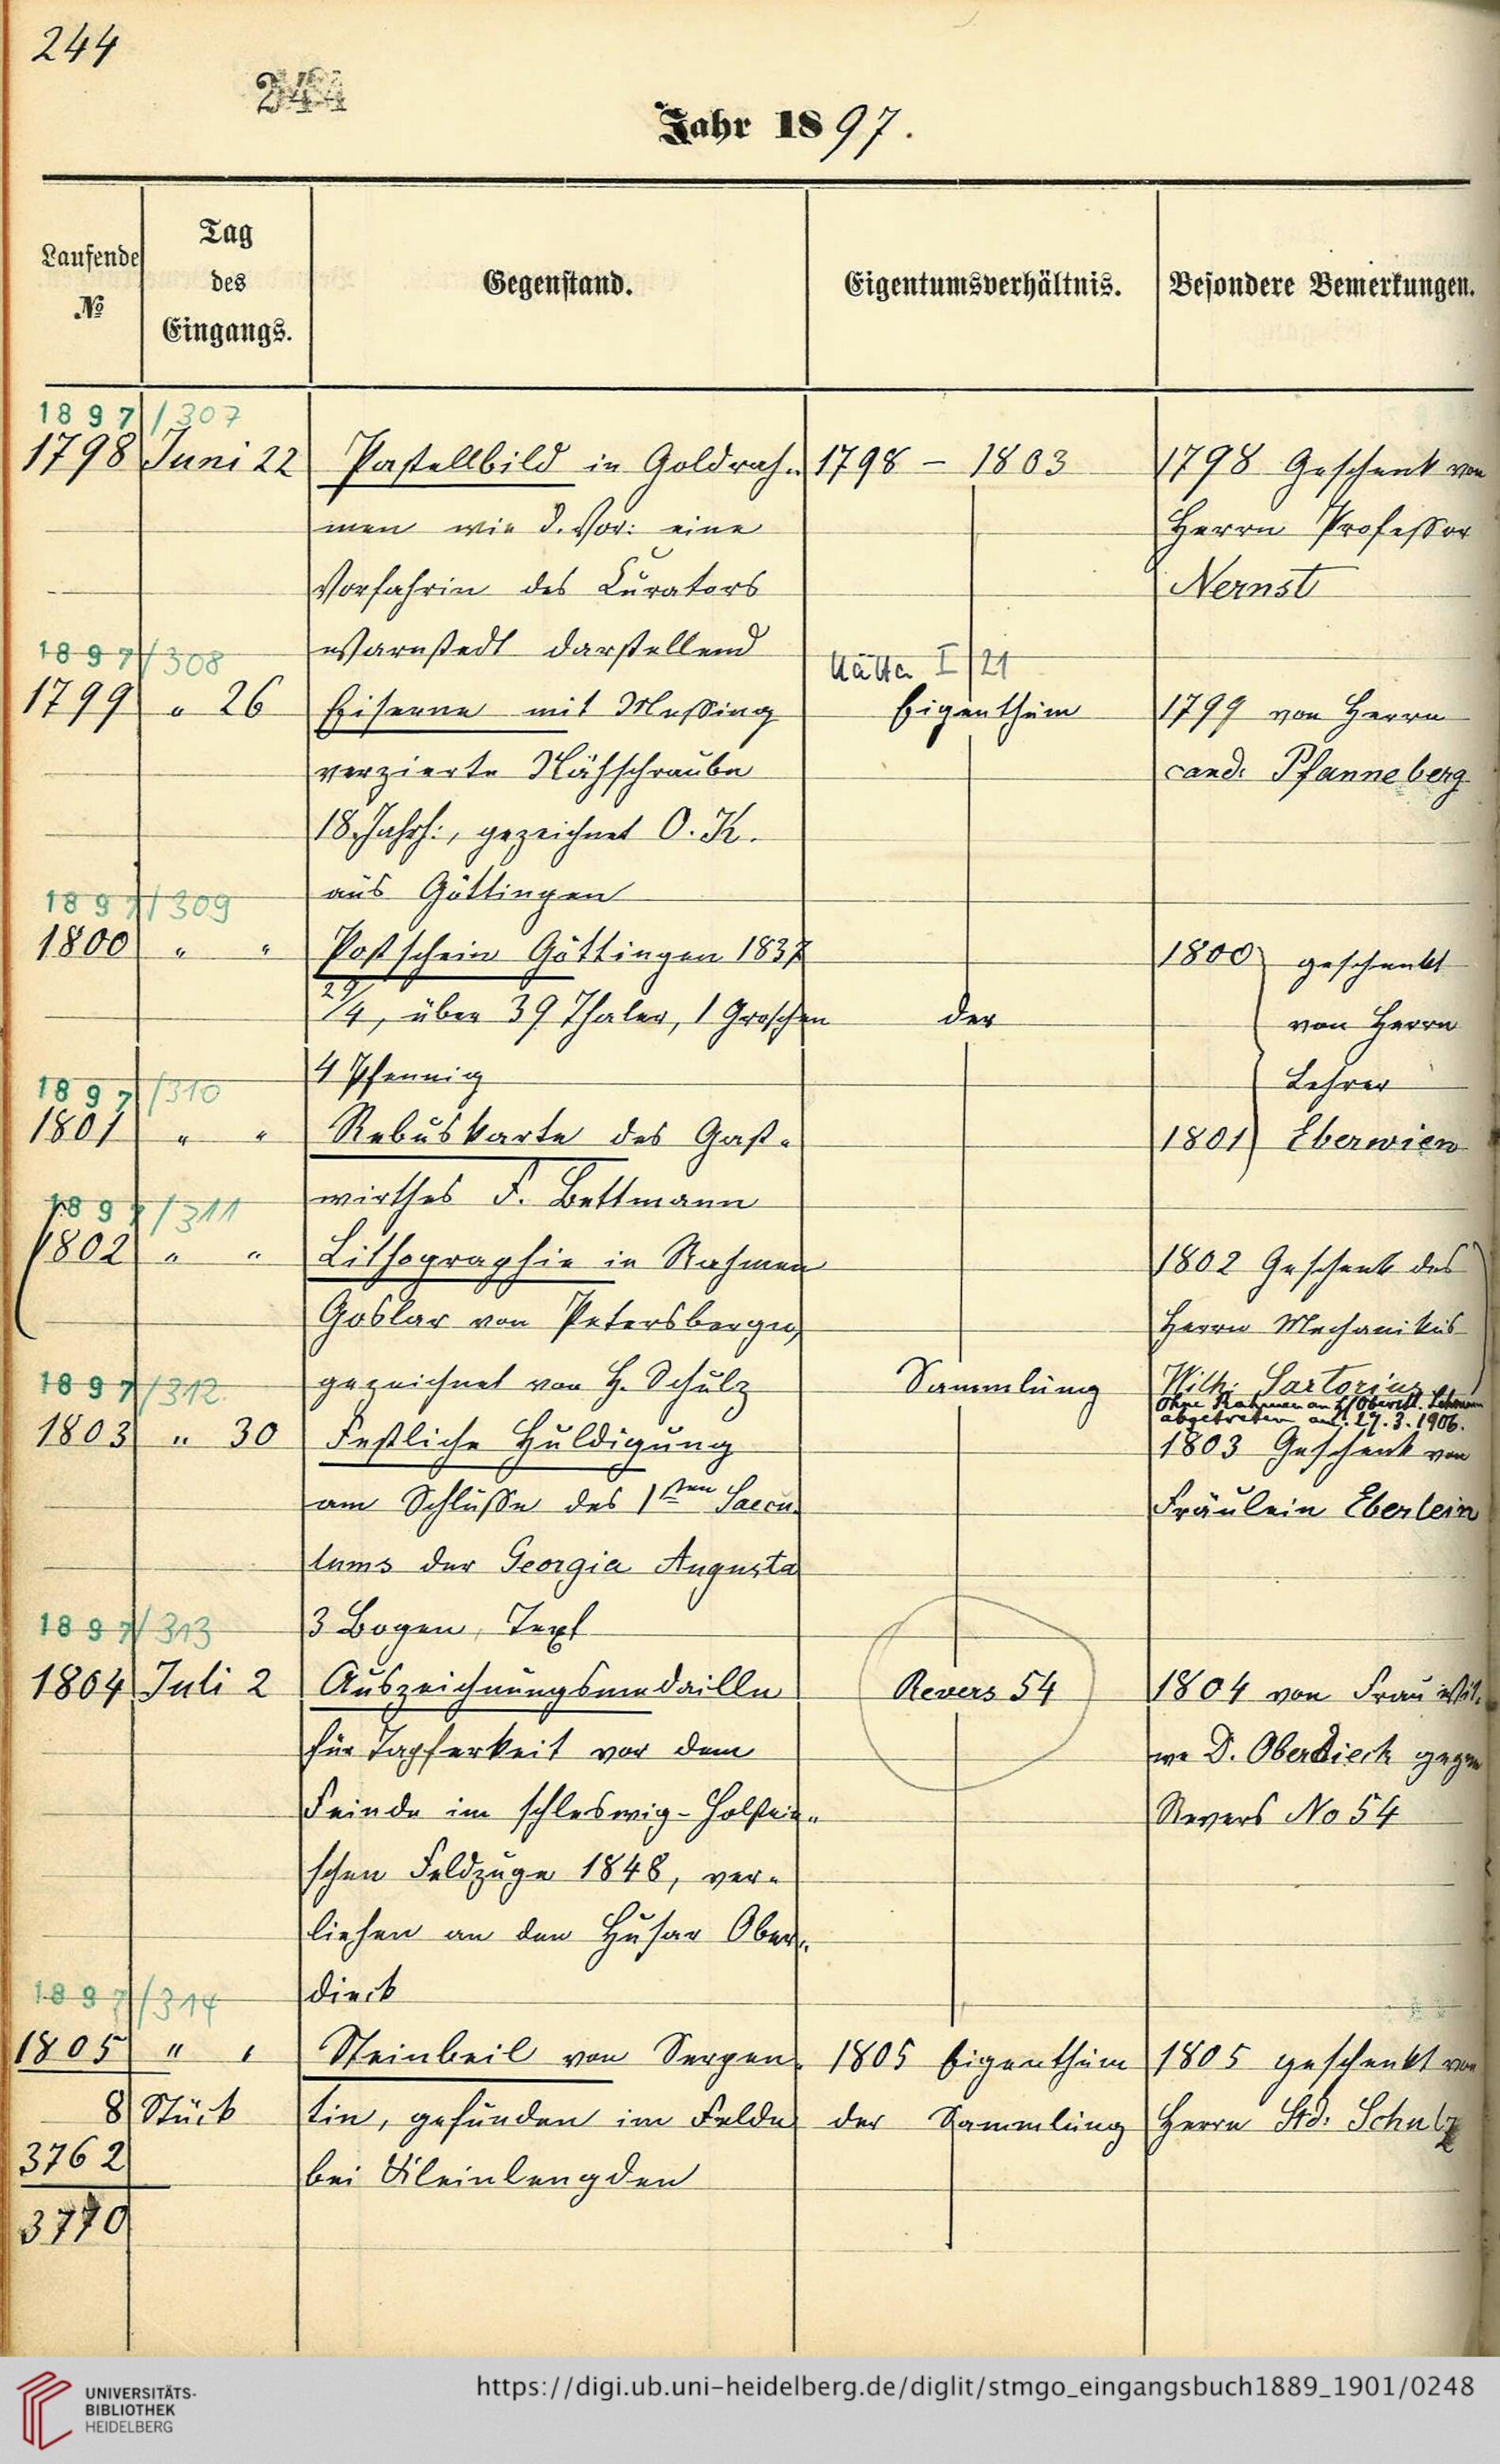 244
244
Jahr 1897.
Laufende
№
Tag
des
Eingangs.
Gegenstand.
Eigentumsverhältnis.
Besondere Bemerkungen.
1897/307
1798 Juni 22 Pastellbild in Goldrah- 1798 – 1803 1798 Geschenk von
men wie d. Vor: eine Herrn Professor
Vorfahrin des Curators Nernst
Warnstedt darstellend
1897/308 I 21
1799 " 26 Eiserne mit Messing Eigenthum 1799 von Herrn
verzierte Nähschraube cand: Pfanneberg
18. Jahrh:, gezeichnet O. K.
aus Göttingen
1897/309
1800 " " Postschein Göttingen 1837 1800 geschenkt
29/4, über 39 Thaler, 1 Groschen der von Herrn
4 Pfennig Lehrer
1897/310
1801 " " Rebuskarte des Gast- 1801 Eberwien
wirthes F. Bettmann
1897/311
1802 " " Lithographie in Rahmen 1802 Geschenk des
Goslar von Petersberge, Herrn Mechanikus
1897/312
gezeichnet von H. Schulz Sammlung Wilh: Sartorius
Ohne Rahmen an Oberstl. Lehmann
abgetreten am: 27.3.1906.
1803 " 30 Festliche Huldigung 1803 Geschenk von
am Schlusse des 1sten Saecu- Fräulein Eberlein
lums der Georgia Augusta
1897/313 3 Bogen, Text
1804 Juli 2 Auszeichnungsmedaille Revers 54 1804 von Frau Wit-
für Tapferkeit vor dem we D. Oberdieck gegen
Feinde im schleswig-Holstein- Revers No 54
schen Feldzuge 1848, ver-
liehen an den Husar Ober-
1897/314 dieck
1805 " " Steinbeil von Serpen- 1805 Eigenthum 1805 geschenkt von
8 Stück tin, gefunden im Felde der Sammlung Herrn Std: Schulz
3762 bei Kleinlengden
3770
UNIVERSITÄTS-
BIBLIOTHEK
HEIDELBERG
https://digi.ub.uni-heidelberg.de/diglit/stmgo_eingangsbuch1889_1901/0248